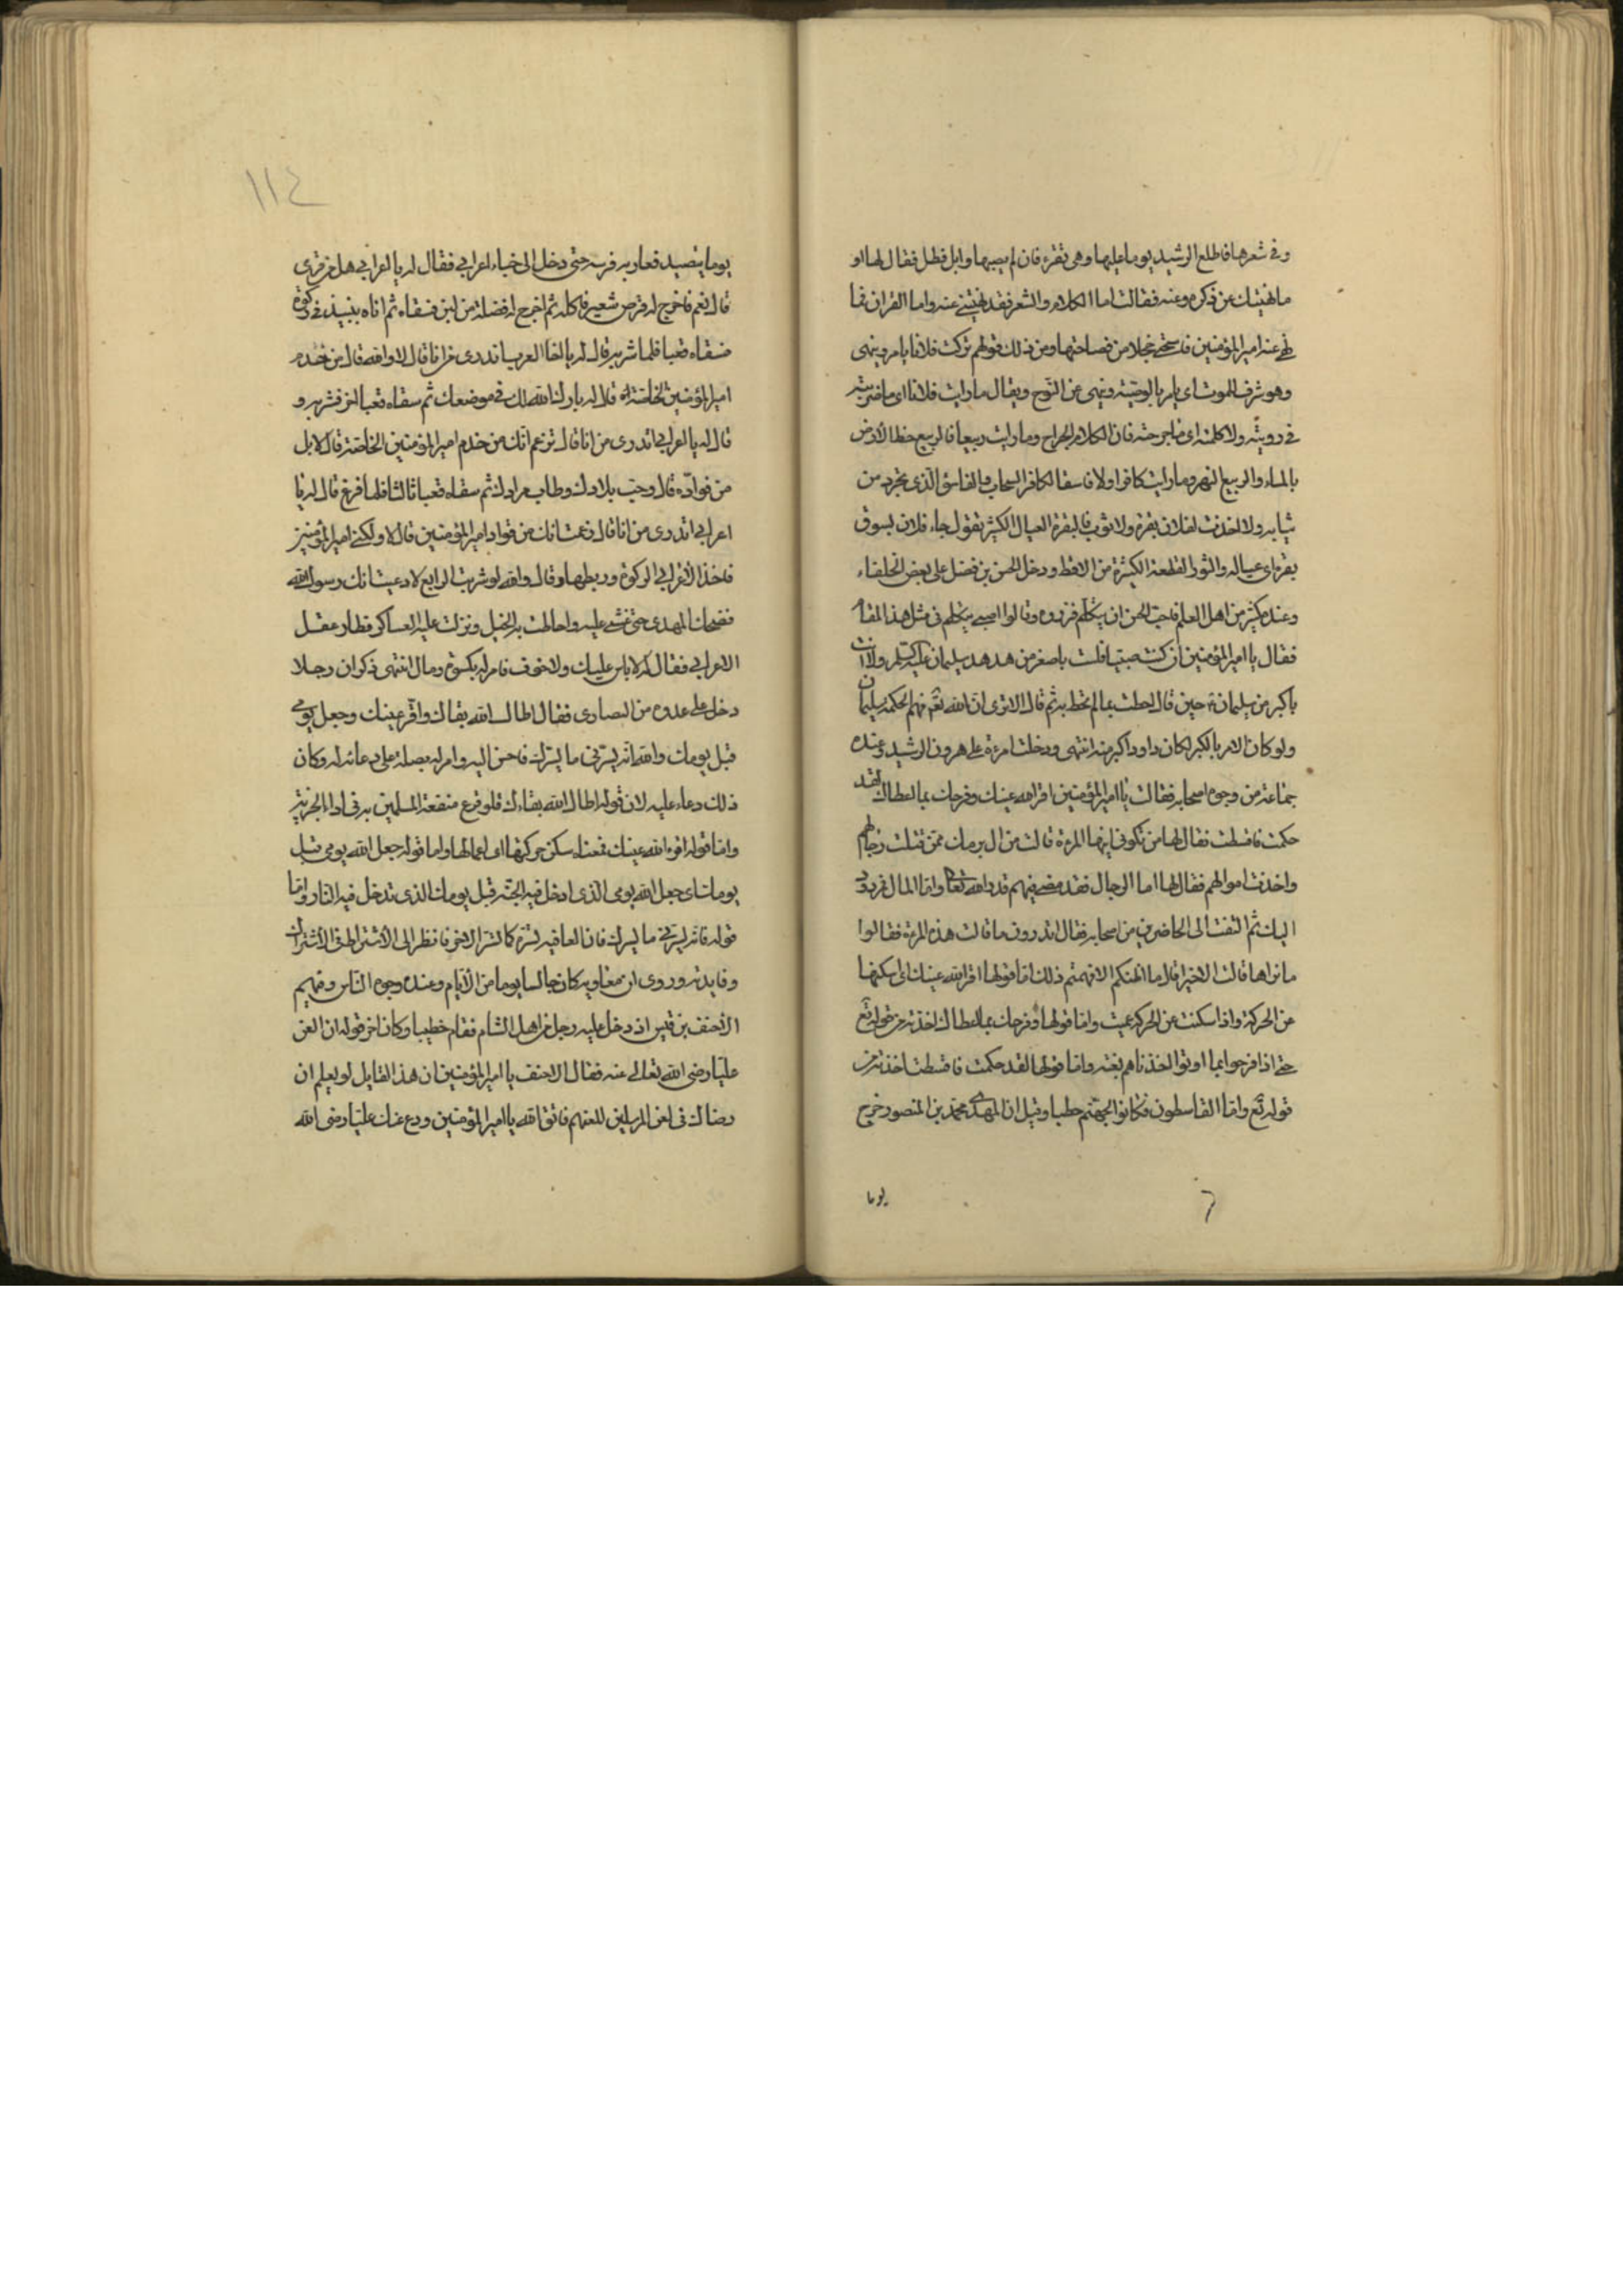 وفى شعرها فاطلع الرشيد يوما عليها وهى تقرء فان لم يصبها وابل فطل فقال لها او
ما نهيتك عن ذكره وعنه فقالت اما الكلام والشعر فقد نهيتنى عنه واما القران فما
نهى عنه امير المؤمنين فاستحى خجلا من فصاحتها ومن ذلك قولهم تركت فلانا يامر وينهى
وهو شرف الموت اى يامر بالوصية وينهى عن النوح ويقال ما رايت فلانا اى ما ضربته
فى رويته ولا كلمته اى ما جرحته فان الكلام الجراح وما رايت ربيعا فالربيع حظ الارض
بالماء والربيع النهر وما رايت كافرا ولا فاسقا الكافر السحاب والفاسق الذى تجرد من
ثيابه ولا اخذت لفلان بقرة ولا ثورا فالبقرة العيال الكثير تقول جاء فلان يسوق
بقرة اى عياله والثور القطعة الكبيرة من الاقط ودخل الحسن بن فضل على بعض الخلفاء
وعنده كثير من اهل العلم فاحب الحسن ان يتكلم فزبروه وقالوا اصبى يتكلم فى مثل هذا المقام
فقال يا امير المؤمنين ان كنت صبيا فلست باصغر من هدهد سليمان عليه السلم ولا انت
باكبر من سليمان حين قال احطت بما لم تحط به ثم قال الا ترى ان الله تع فهم الحكمة سليمان
ولو كان الامر بالكبر لكان داود اكبر منه انتهى ودخلت امرءة على هرون الرشيد وعنده
جماعة من وجوه اصحابه فقالت يا امير المؤمنين اقر الله عينك وفرحك بما اعطاك لقد
حكمت فاقسطت فقال لها من تكونى ايتها المرءة قالت من ال برمك ممن قتلت رجالهم
واخذت اموالهم فقال لها اما الرجال فقد مضى فيهم قدر الله تعالى واما المال فمردود
اليك ثم التفت الى الحاضرين من اصحابه فقال اتدرون ما قالت هذه المرءة فقالوا
ما نراها قالت الا خيرا قال ما اظنكم الا فهمتم ذلك اما قولها اقر الله عينك اى اسكنها
من الحركة واذا سكنت عن الحركة عميت واما قولها وفرحك بما اعطاك اخذته من قوله تع
حتى اذا فرحوا بما اوتوا اخذناهم بغتة واما قولها لقد حكمت فاقسطت اخذته من
قوله تع واما القاسطون فكانوا لجهنم حطبا وقيل ان المهدى محمد بن المنصور خرج
يوما
١١٤
يوما يتصيد فعار به فرسه حتى دخل الى خباء اعرابى فقال له يا اعرابى هل من قرى
قال نعم فاخرج له قرص شعير فاكله ثم اخرج له فضلة من لبن فسقاه ثم اتاه بنبيذ فى ركوة
فسقاه قعبا فلما شربه قال له يا اخا العرب اتدرى من انا قال لا والله قال من خدم
امير المؤمنين الخاصة قال له بارك الله لك فى موضعك ثم سقاه قعبا اخر فشربه و
قال له يا اعرابى اتدرى من انا قال تزعم انك من خدم امير المؤمنين الخاصة قال لا بل
من قواده قال رحبت بلادك وطاب مرادك ثم سقاه قعبا ثالثا فلما فرغ قال له يا
اعرابى اتدرى من انا قال زعمت انك من قواد امير المؤمنين قال لا ولكنى امير المؤمنين
فاخذ الاعرابى الركوة وربطها وقال والله لو شربت الرابع لادعيت انك رسول الله
فضحك المهدى حتى غشى عليه واحاطت به الخيل ونزلت عليه العساكر فطار عقل
الاعرابى فقال له لا باس عليك ولا خوف فامر له بكسوة ومال انتهى ذكر ان رجلا
دخل على عدوه من النصارى فقال اطال الله بقاك واقر عينك وجعل يومى
قبل يومك والله انه يسرنى ما يسرك فاحسن اليه وامر له بصلة على دعائه له وكان
ذلك دعاء عليه لان قوله اطال الله بقاءك فلوقوع منفعة المسلمين به فى اداء الجزية
واما قوله اقر الله عينك فمعناه سكن حركتها اى اعمالها واما قوله جعل الله يومى قبل
يومك اى جعل الله يومى الذى ادخل فيه الجنة قبل يومك الذى تدخل فيه النار واما
قوله فانه يسرنى ما يسرك فان العافية تسره كما تسر الاخر فانظر الى الاشتراك
وفايدته وروى ان معاوية كان جالسا يوما من الايام وعنده وجوه الناس وفيهم
الاحنف بن قيس اذ دخل عليه رجل من اهل الشام فقام خطيبا وكان اخر قوله ان لعن
عليا رضى الله تعالى عنه فقال الاحنف يا امير المؤمنين ان هذا القايل لو يعلم ان
رضاك فى لعن المرسلين للعنهم فاتق الله يا امير المؤمنين ودع عنك عليا رضى الله